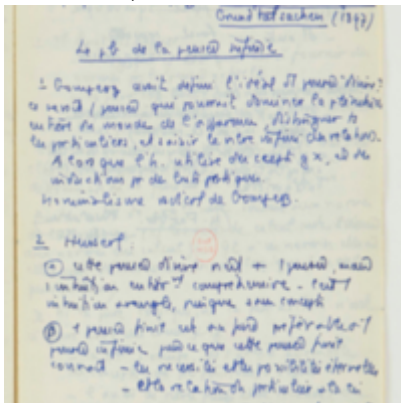 Grundtatsachen (1897)
Le pb de la pensée infinie
1 Gomperz avait défini l'idéal d'1 pensée divine:
ce serait 1 pensée qui pourrait dominer la plénitude
entière du monde de l'apparence, distinguer ts
les particularités, et saisir le nbre infini des relations.
Alors que l'h. utilise des cepts gx, et de
inductions pr de buts pratiques.
Nominalisme radical de Gomperz.
2 Husserl:
cette pensée divine n'est + 1 pensée, mais
1 intuition entièrt compréhensive - c'est 1
intuition aveugle, puisque sans concept
1 pensée finie est au fond préférable à 1
pensée infinie parce que cette pensée finie
connait - les nécessités et les possibilités éternelles
- et la relation du particulier à la loi